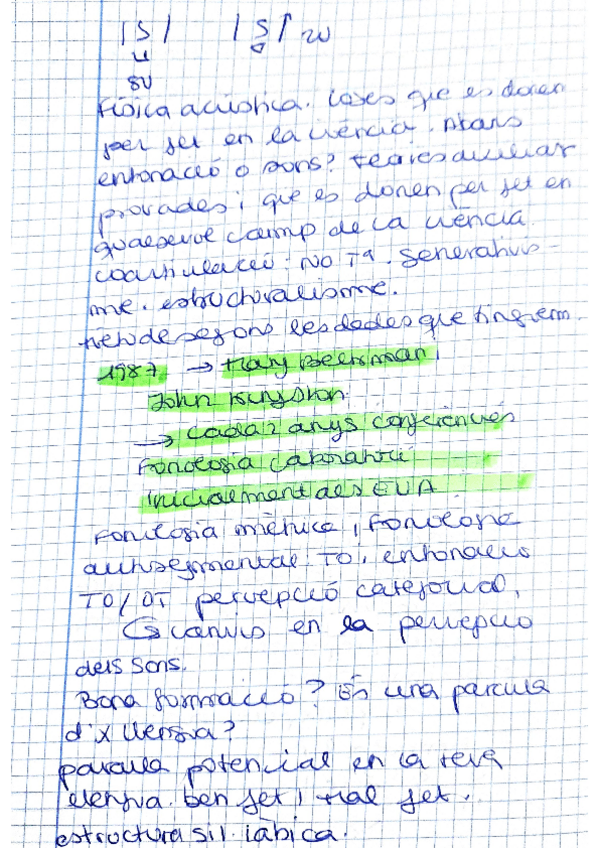 /S/ /S/ zu
su
Física acústica. Coses que es donen
per fet en la ciència. Abans
entonació o sons? teories auxiliar
provades i que es donen per fet en
qualsevol camp de la ciència
coarticulació: No Tª. generativis-
me. estructuralisme.
segons les dades que tinguem.
1987 → Mary Beckman i
John Kingston
→ Cada 2 anys conferències
Fonologia Laboratori
Inicialment als EUA.
Fonologia mètrica i, Fonologia
autosegmental: TO, entonació
TO/OT percepció categorical,
canvis en la percepció
dels sons.
Bona formació? És una paraula
d'x llengua?
paraula potencial en la teva
llengua. ben fet i mal fet.
estructura sil·làbica.